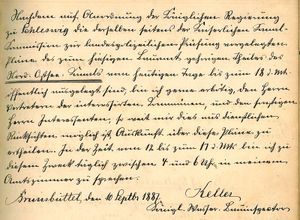 Nachdem auf Anordnung der Königlichen Regierung
zu Schleswig die derselben seitens der Kaiserlichen Canal-
Commission zur landespolizeilichen Prüfung vorgelegten
Pläne des zum hiesigen Bauamt gehörigen Theiles des
Nord-Ostsee-Canals vom heutigen Tage bis zum 18 d. Mt.
öffentlich ausgelegt sind, bin ich gerne erbötig, den Herrn
Vertretern der interessirten Commune, und den sonstigen
Herrn Interessenten, so weit mir dies aus dienstlichen
Rücksichten möglich ist Auskunft über diese Pläne zu
ertheilen. In der Zeit vom 12 bis zum 17 d. Mt. bin ich zu
diesem Zweck täglich zwischen 4 und 6 Uhr in meinem
Amtszimmer zu sprechen.
Brunsbüttel, den 10 Septbr 1887.
Keller
Königl. Wasser-Bauinspector